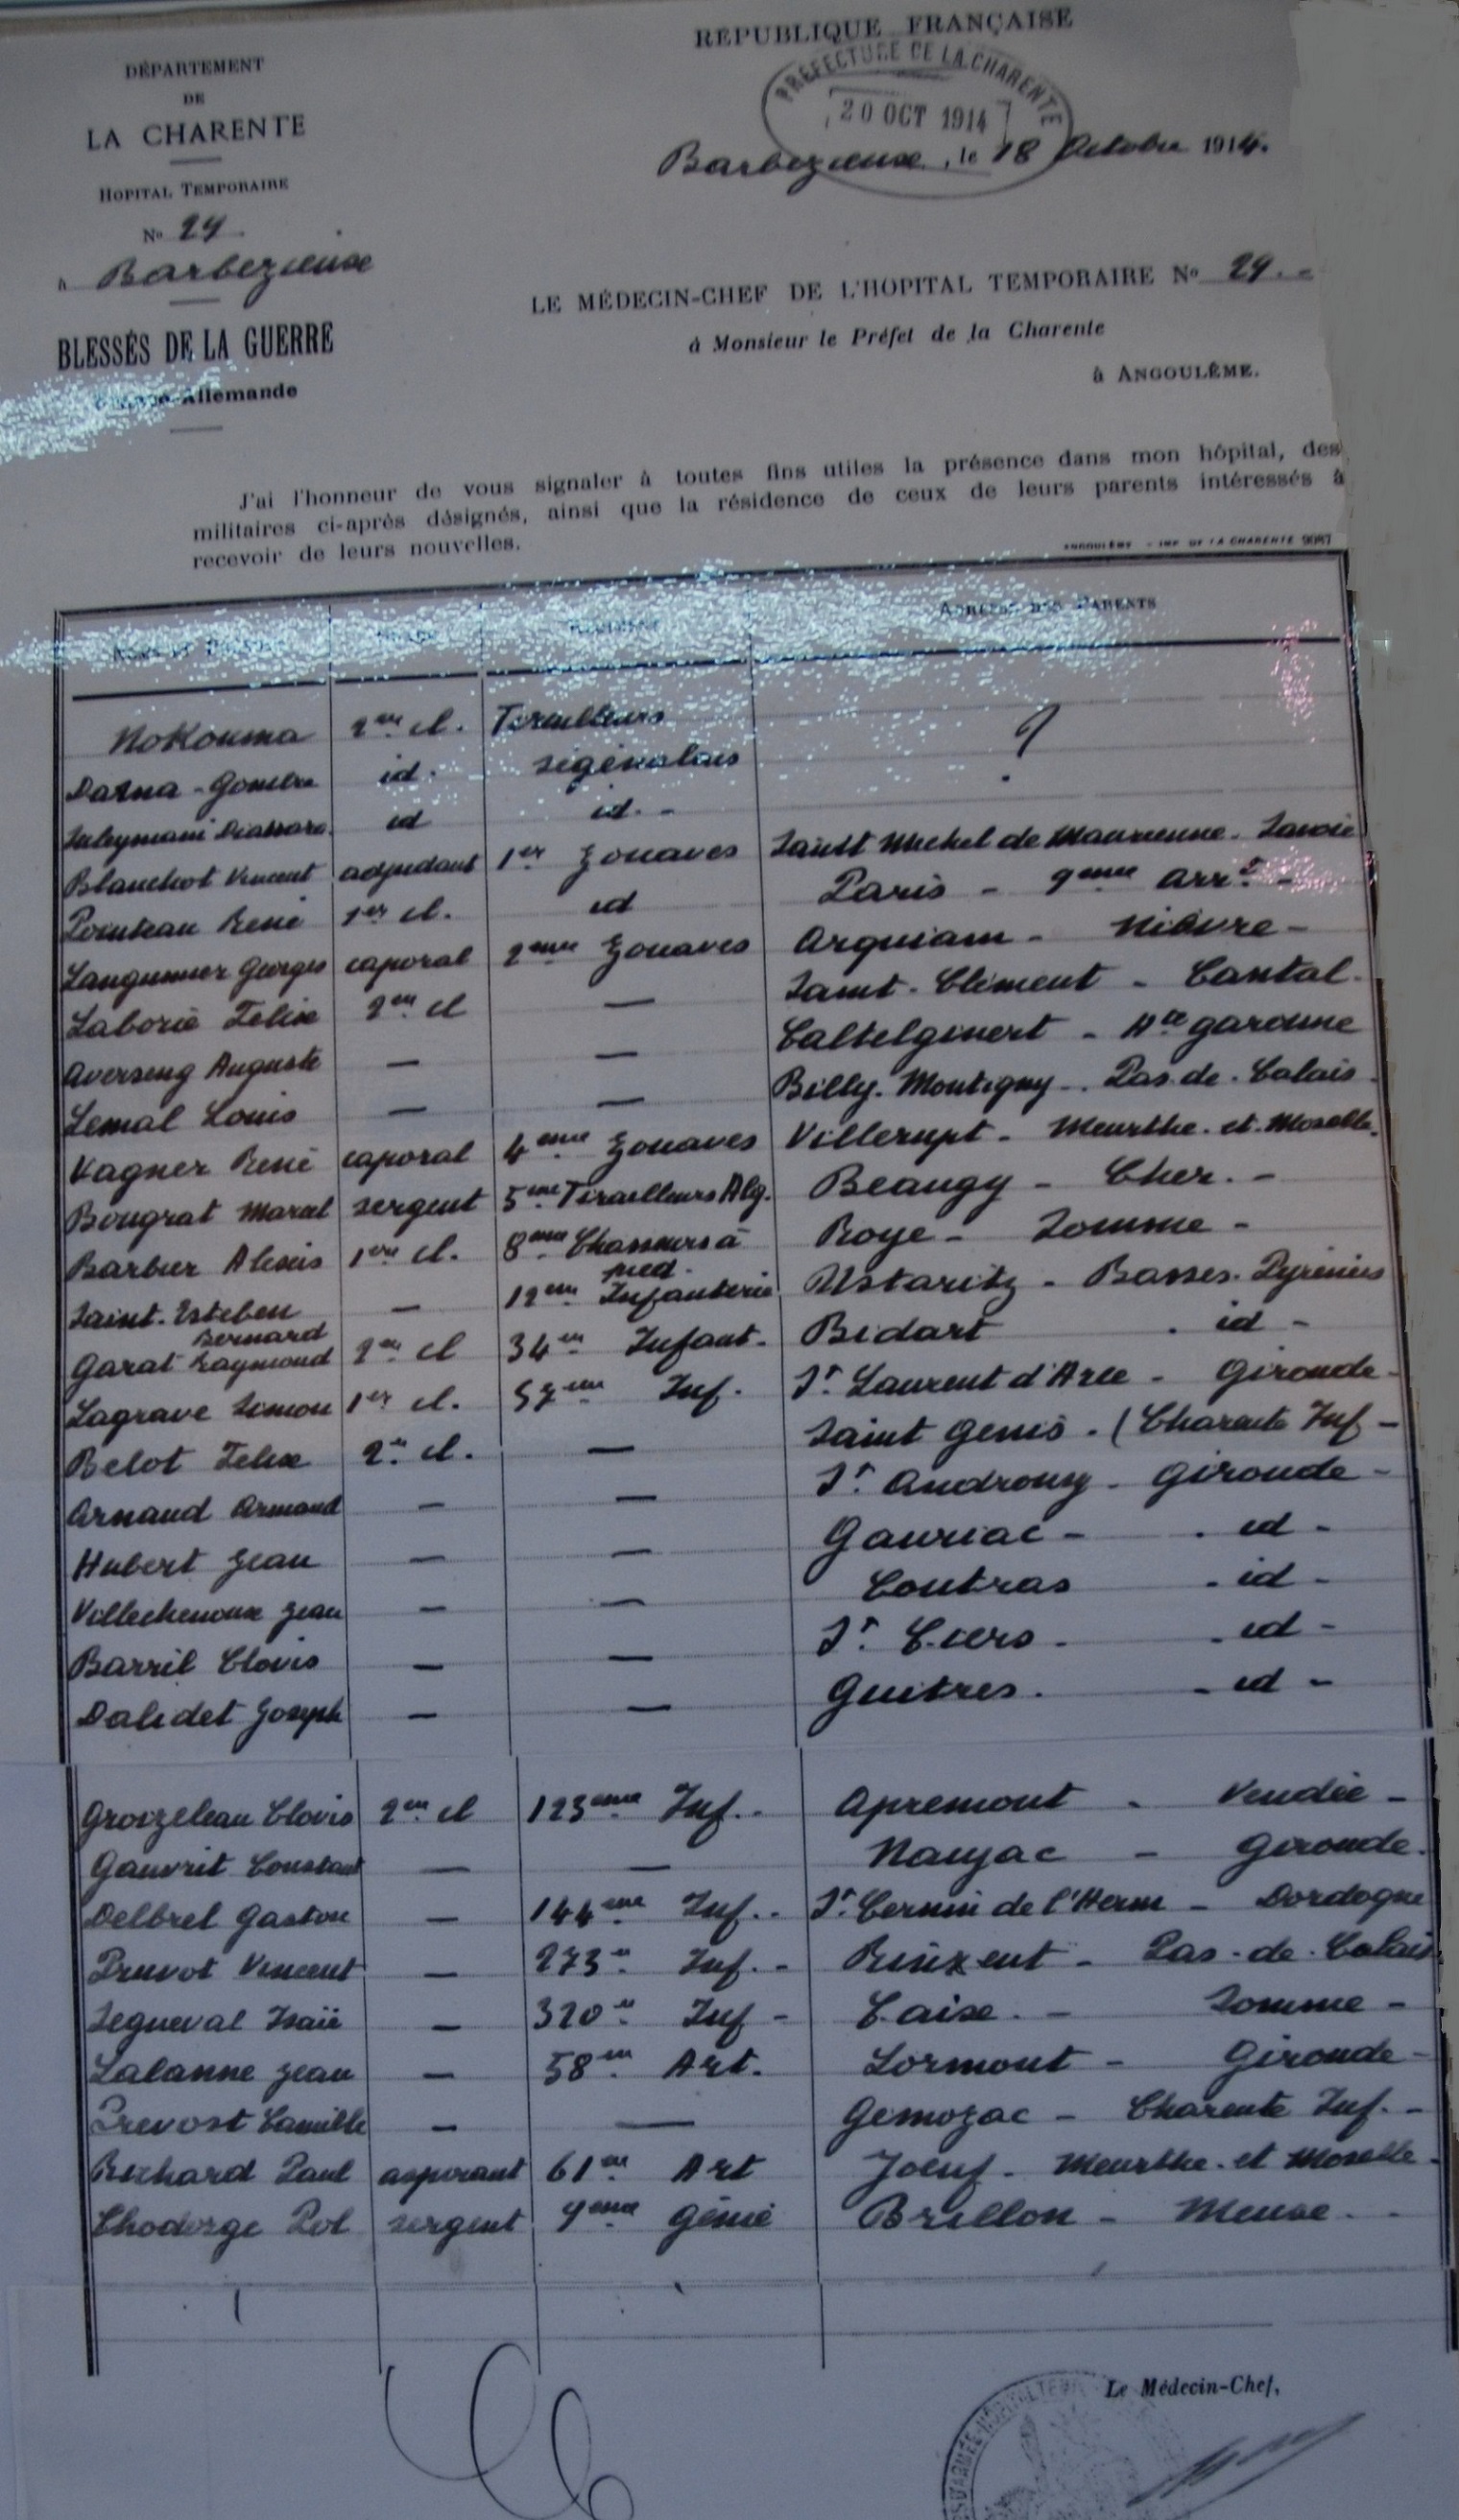 RÉPUBLIQUE FRANÇAISE
DÉPARTEMENT
DE
LA CHARENTE
HOPITAL TEMPORAIRE
No 29
à Barbezieux
BLESSÉS DE LA GUERRE
Allemande
PRÉFECTURE DE LA CHARENTE
20 OCT 1914
Barbezieux, le 18 Octobre 1914.
LE MÉDECIN-CHEF DE L'HOPITAL TEMPORAIRE No 29.-
à Monsieur le Préfet de la Charente
à ANGOULÊME.
J'ai l'honneur de vous signaler à toutes fins utiles la présence dans mon hôpital, des
militaires ci-après désignés, ainsi que la résidence de ceux de leurs parents intéressés à
recevoir de leurs nouvelles.
ANGOULÊME - IMP. DE LA CHARENTE 9087
ADRESSE DES PARENTS
NoKouma 2me cl. Tirailleurs ?
Darna - Gomina id. ségénalais
Suleymani Diassara id id. -
Blanchot Vincent adjudant 1er Zouaves Saint Michel de Maurienne - Savoie
Pointeau René 1er cl. id Paris - 9eme Arrt -
Languinier Georges caporal 2eme Zouaves Arquiam - Nièvre -
Laborie Felix 2me cl — Saint-Clément - Cantal.
Averseng Auguste — — Caltelginert - Hte garonne
Lemal Louis — — Billy-Montigny - Pas-de-Calais.
Vagner René caporal 4eme Zouaves Villerupt - Meurthe-et-Moselle.
Bougrat Marcel sergent 5me Tirailleurs Alg. Beaugy - Cher. -
Barbier Alexis 1ere cl. 8eme Chasseurs à pied. Roye - Somme -
Saint-Esteben Bernard — 12eme Infanterie Ustaritz - Basses-Pyrénées
Garat Raymond 2me cl 34me Infant. Bidart - id -
Lagrave Simon 1er cl. 57eme Inf. St Laurent d'Arce - Gironde -
Belot Felix 2e cl. — Saint Genis - (Charente Inf -
Arnaud Armand — — St. Androny - Gironde -
Hubert Jean — — Gauriac - id -
Villechenoux Jean — — Coutras - id -
Barril Clovis — — St. Ciers - - id -
Dalidet Joseph — — Guitres. - id -
Groizeleau Clovis 2me cl 123eme Inf. - Apremont - Vendée -
Gauvrit Constant — — Naujac - Gironde.
Delbrel Gaston — 144eme Inf. - St. Cernin de l'Herm - Dordogne
Pruvot Vincent — 273e Inf. - Rinxent - Pas-de-Calais
Segueval Isaïe — 320e Inf - Caix. - Somme -
Lalanne Jean — 58me Art. Lormont - Gironde -
Prevost Camille — — Gemozac - Charente Inf. -
Richard Paul aspirant 61me Art Joeuf - Meurthe-et-Moselle -
Chodorge Pol sergent 9eme Génie Brillon - Meuse. -
Le Médecin-Chef,